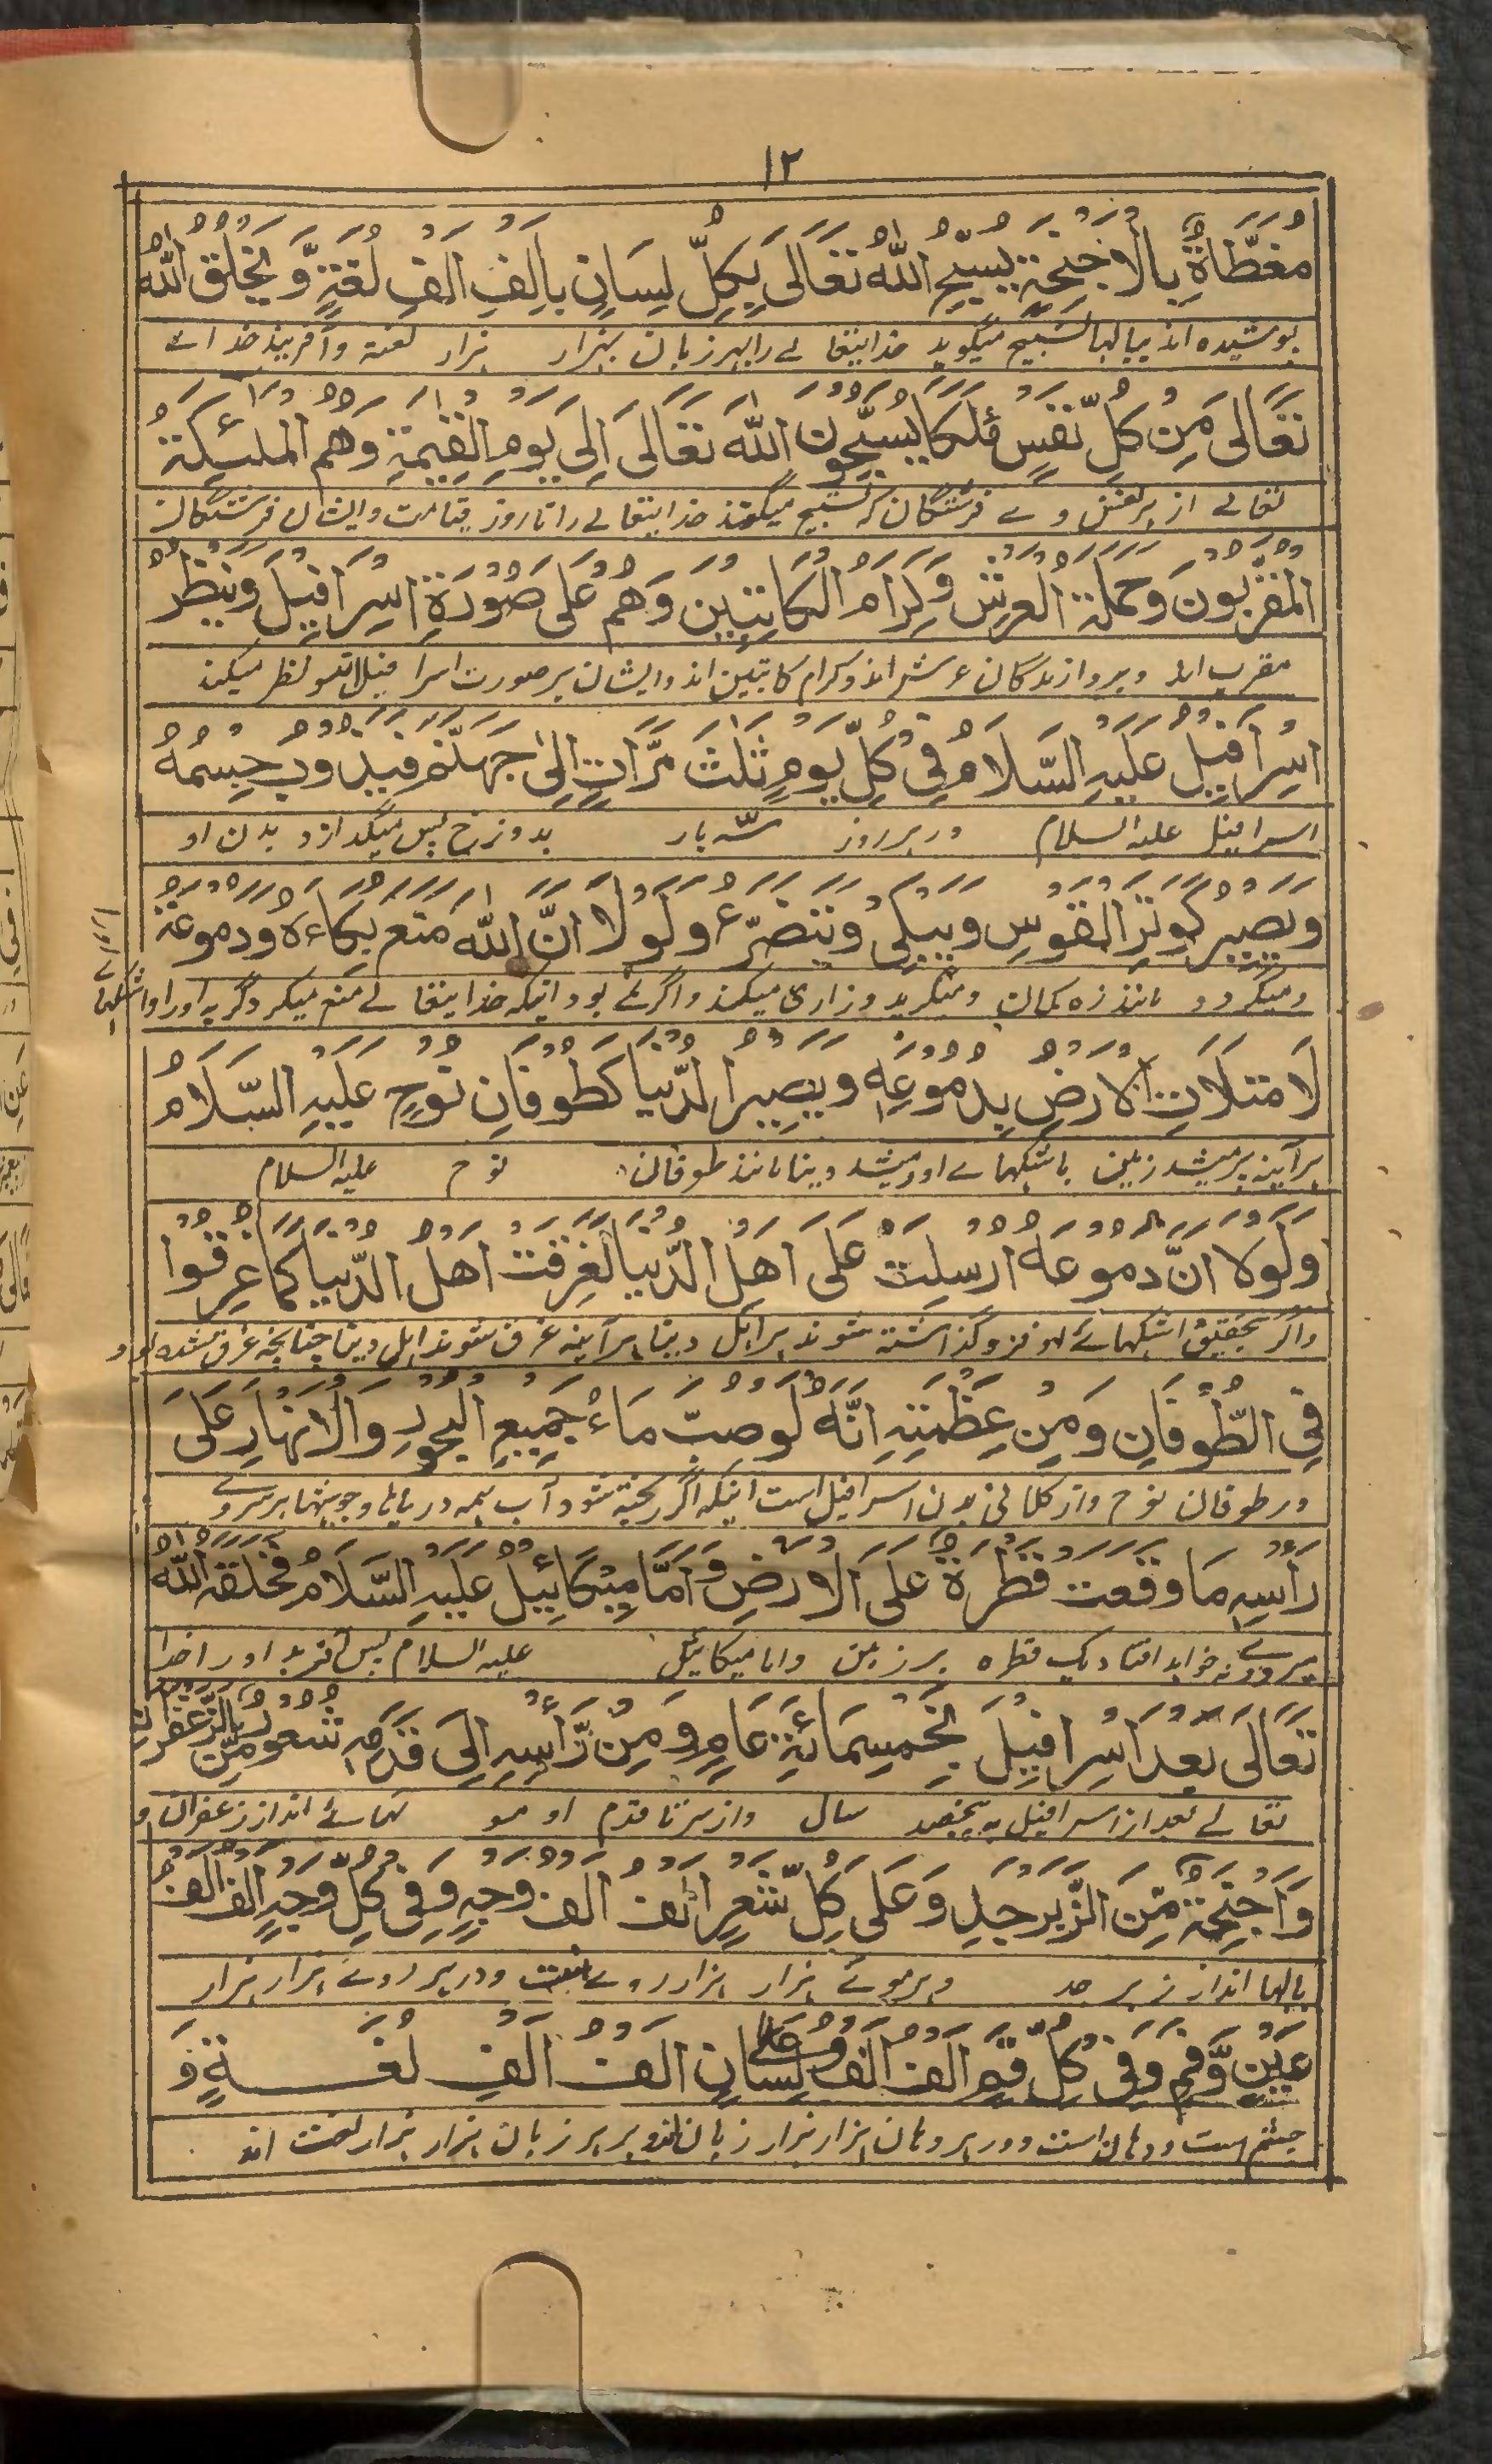 ١٢
مغَطَّاةٌ بِالاَجْنِحَةِ يُسَبِّحُ اللهَ تَعَالٰى بِكُلِّ لِسَانٍ بِاَلْفِ اَلْفِ لُغَةٍ وَّيَخْلُقُ اللهُ
پوشیده اند ببالها تسبیح میگوید خدایتعالے را بهر زبان بهزار هزار لغته و آفریند خداے
تَعَالٰى مِنْ كُلِّ نَفْسٍ مَلَكًا يُسَبِّحُوْنَ اللهَ تَعَالٰى اِلٰى يَوْمِ الْقِيٰمَةِ وَهُمُ الْمَلٰئِكَةُ
تعالے از هر نفس وے فرشتگان که تسبیح میگویند خدایتعالے را تا روز قیامت و ایشان فرشتگان
الْمُقَرَّبُوْنَ وَحَمَلَةُ الْعَرْشِ وَكِرَامُ الْكَاتِبِيْنَ وَهُمْ عَلٰى صُوْرَةِ اِسْرَافِيْلَ وَيَنْظُرُ
مقرب اند و بردازندگان عرش اند و کرام کاتبین اند و ایشان بر صورت اسرافیل اند و نظر میکند
اِسْرَافِيْلُ عَلَيْهِ السَّلَامُ فِيْ كُلِّ يَوْمٍ ثَلٰثَ مَرَّاتٍ اِلٰى جَهَنَّمَ فَيَذُوْبُ جِسْمُهُ
اسرافیل علیه السلام در هر روز سه بار بدوزخ پس میگدازد بدن او
وَيَصِيْرُ كَوَتَرِ الْقَوْسِ وَيَبْكِيْ وَيَتَضَرَّعُ وَلَوْلَا اَنَّ اللهَ مَنَعَ بُكَاءَهُ وَدُمُوْعَهُ
و میگردد مانند زه کمان و میگرید و زاری میکند و اگر نے بود اینکه خدایتعالے منع میکرد گریه او را و اشکهاے او را
لَامْتَلَاَتِ الْاَرْضُ بِدُمُوْعِهِ وَيَصِيْرُ الدُّنْيَا كَطُوْفَانِ نُوْحٍ عَلَيْهِ السَّلَامُ
هر آینه پر میشد زمین باشکهاے او و میشد دینا مانند طوفان نوح علیه السلام
وَلَوْلَا اَنَّ دُمُوْعَهُ اُرْسِلَتْ عَلٰى اَهْلِ الدُّنْيَا لَغَرِقَتْ اَهْلُ الدُّنْيَا كَمَا غَرِقُوْا
و اگر بتحقیق اشکهاے او فرو گذاشته شوند بر اهل دینا هر آینه غرق شوند اهل دینا چنانچه غرق شده بود
فِي الطُّوْفَانِ وَمِنْ عَظْمَتِهِ اَنَّهُ لَوْ صُبَّ مَاءُ جَمِيْعِ الْبُحُوْرِ وَالْاَنْهَارِ عَلٰى
در طوفان نوح و از کلانی بدن اسرافیل است اینکه اگر ریخته شود آب همه دریاها و جویها بر سروے
رَاْسِهِ مَا وَقَعَتْ قَطْرَةٌ عَلَى الْاَرْضِ وَاَمَّا مِيْكَائِيْلُ عَلَيْهِ السَّلَامُ فَخَلَقَهُ اللهُ
نه خواهد افتاد یک قطره بر زمین و اما میکائیل علیه السلام پس آفرید او را خدا
تَعَالٰى بَعْدَ اِسْرَافِيْلَ بِخَمْسِمِائَةِ عَامٍ وَمِنْ رَّاْسِهِ اِلٰى قَدَمِهِ شُعُوْرٌ مِّنَ الزَّعْفَرَانِ
تعالے بعد از اسرافیل به پنجصد سال و از سر تا قدم او مو هاے اند از زعفران و
وَاَجْنِحَةٌ مِّنَ الزَّبَرْجَدِ وَعَلٰى كُلِّ شَعْرٍ اَلْفُ اَلْفِ وَجْهٍ وَفِيْ كُلِّ وَجْهٍ اَلْفُ اَلْفِ
بالها اند از زبرجد و بر هر موئے هزار هزار روے است و در هر روے هزار هزار
عَيْنٍ وَّفَمٍ وَفِيْ كُلِّ فَمٍ اَلْفُ اَلْفِ لِسَانٍ وَعَلٰى كُلِّ لِسَانٍ اَلْفُ اَلْفِ لُغَةٍ وَ
چشم است و دهان است و در هر دهان هزار هزار زبان اند و بر هر زبان هزار هزار لغت اند